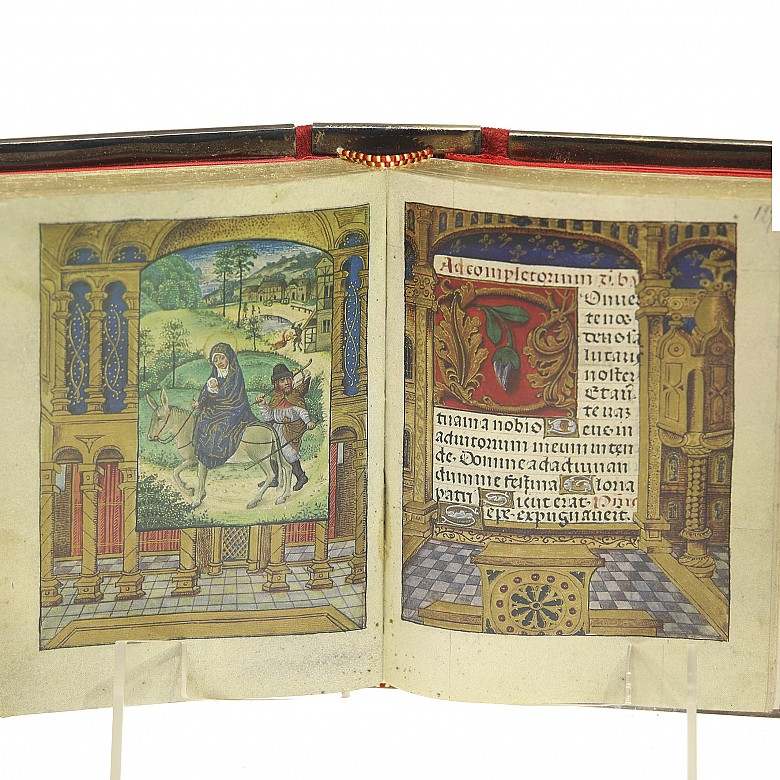 Ad completorium
Conver
te nos
deus sa
lutaris
noster
Et aū
te iraz
tuam a nobis Deus in
adiutorium meum inten
de. Domine ad adiuvan
dum me festina Gloria
patri Sicut erat. Pīne
Sepe expugnaverūt.